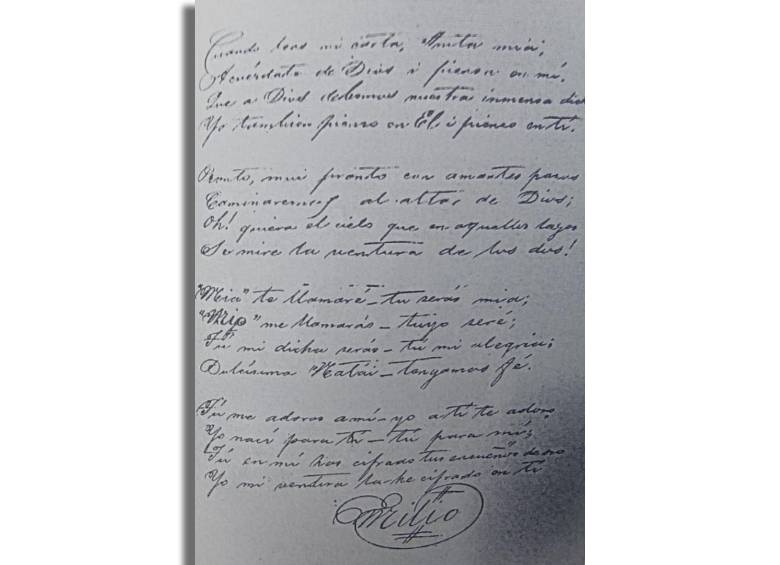 Cuando leas mi carta, Anita mia,
Acuérdate de Dios i piensa en mí.
Que a Dios debemos nuestra inmensa dic
Yo tambien pienso en Él i pienso en tí.
Pronto, mui pronto con amantes pasos
Caminaremos al altar de Dios;
Oh! quiera el cielo que en aquellos lazos
Se mire la ventura de los dos!
"Mia" te llamaré – tú serás mia;
"Mio" me llamarás – tuyo seré;
Tú mi dicha serás – tú mi alegria;
Dulcísima Natái – tengamos fé.
Tú me adoras a mí – yo a tí te adoro
Yo nací para tí – tú para mí;
Tú en mí has cifrado tus ensueños de oro
Yo mi ventura la he cifrado en tí
Emilio